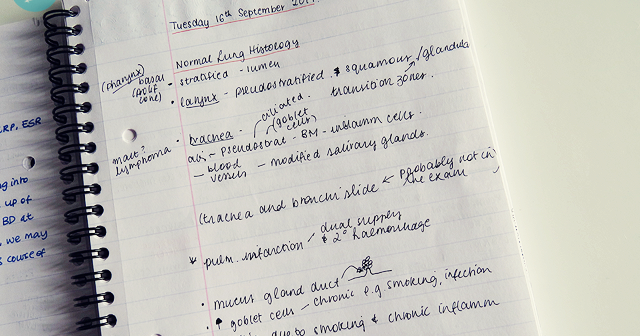 Tuesday 16th September
Normal Lung Histology
(pharynx) basal - stratified - lumen
(prolif zone)
• larynx - pseudostratified & squamous / glandular
transition zones.
ciliated.
(goblet cells)
malt? lymphoma • trachea -
- pseudostrat - BM - inflamm cells.
- blood vessels - modified salivary glands.
(trachea and bronchi slide ← probably not in the exam
* pulm. infarction / dual supply
& 2° haemorrhage
• mucus gland duct
• ↑ goblet cells - chronic e.g smoking, infection
due to smoking & chronic inflamm
CRP, ESR
ng into
up of
BD at
, we may
course of